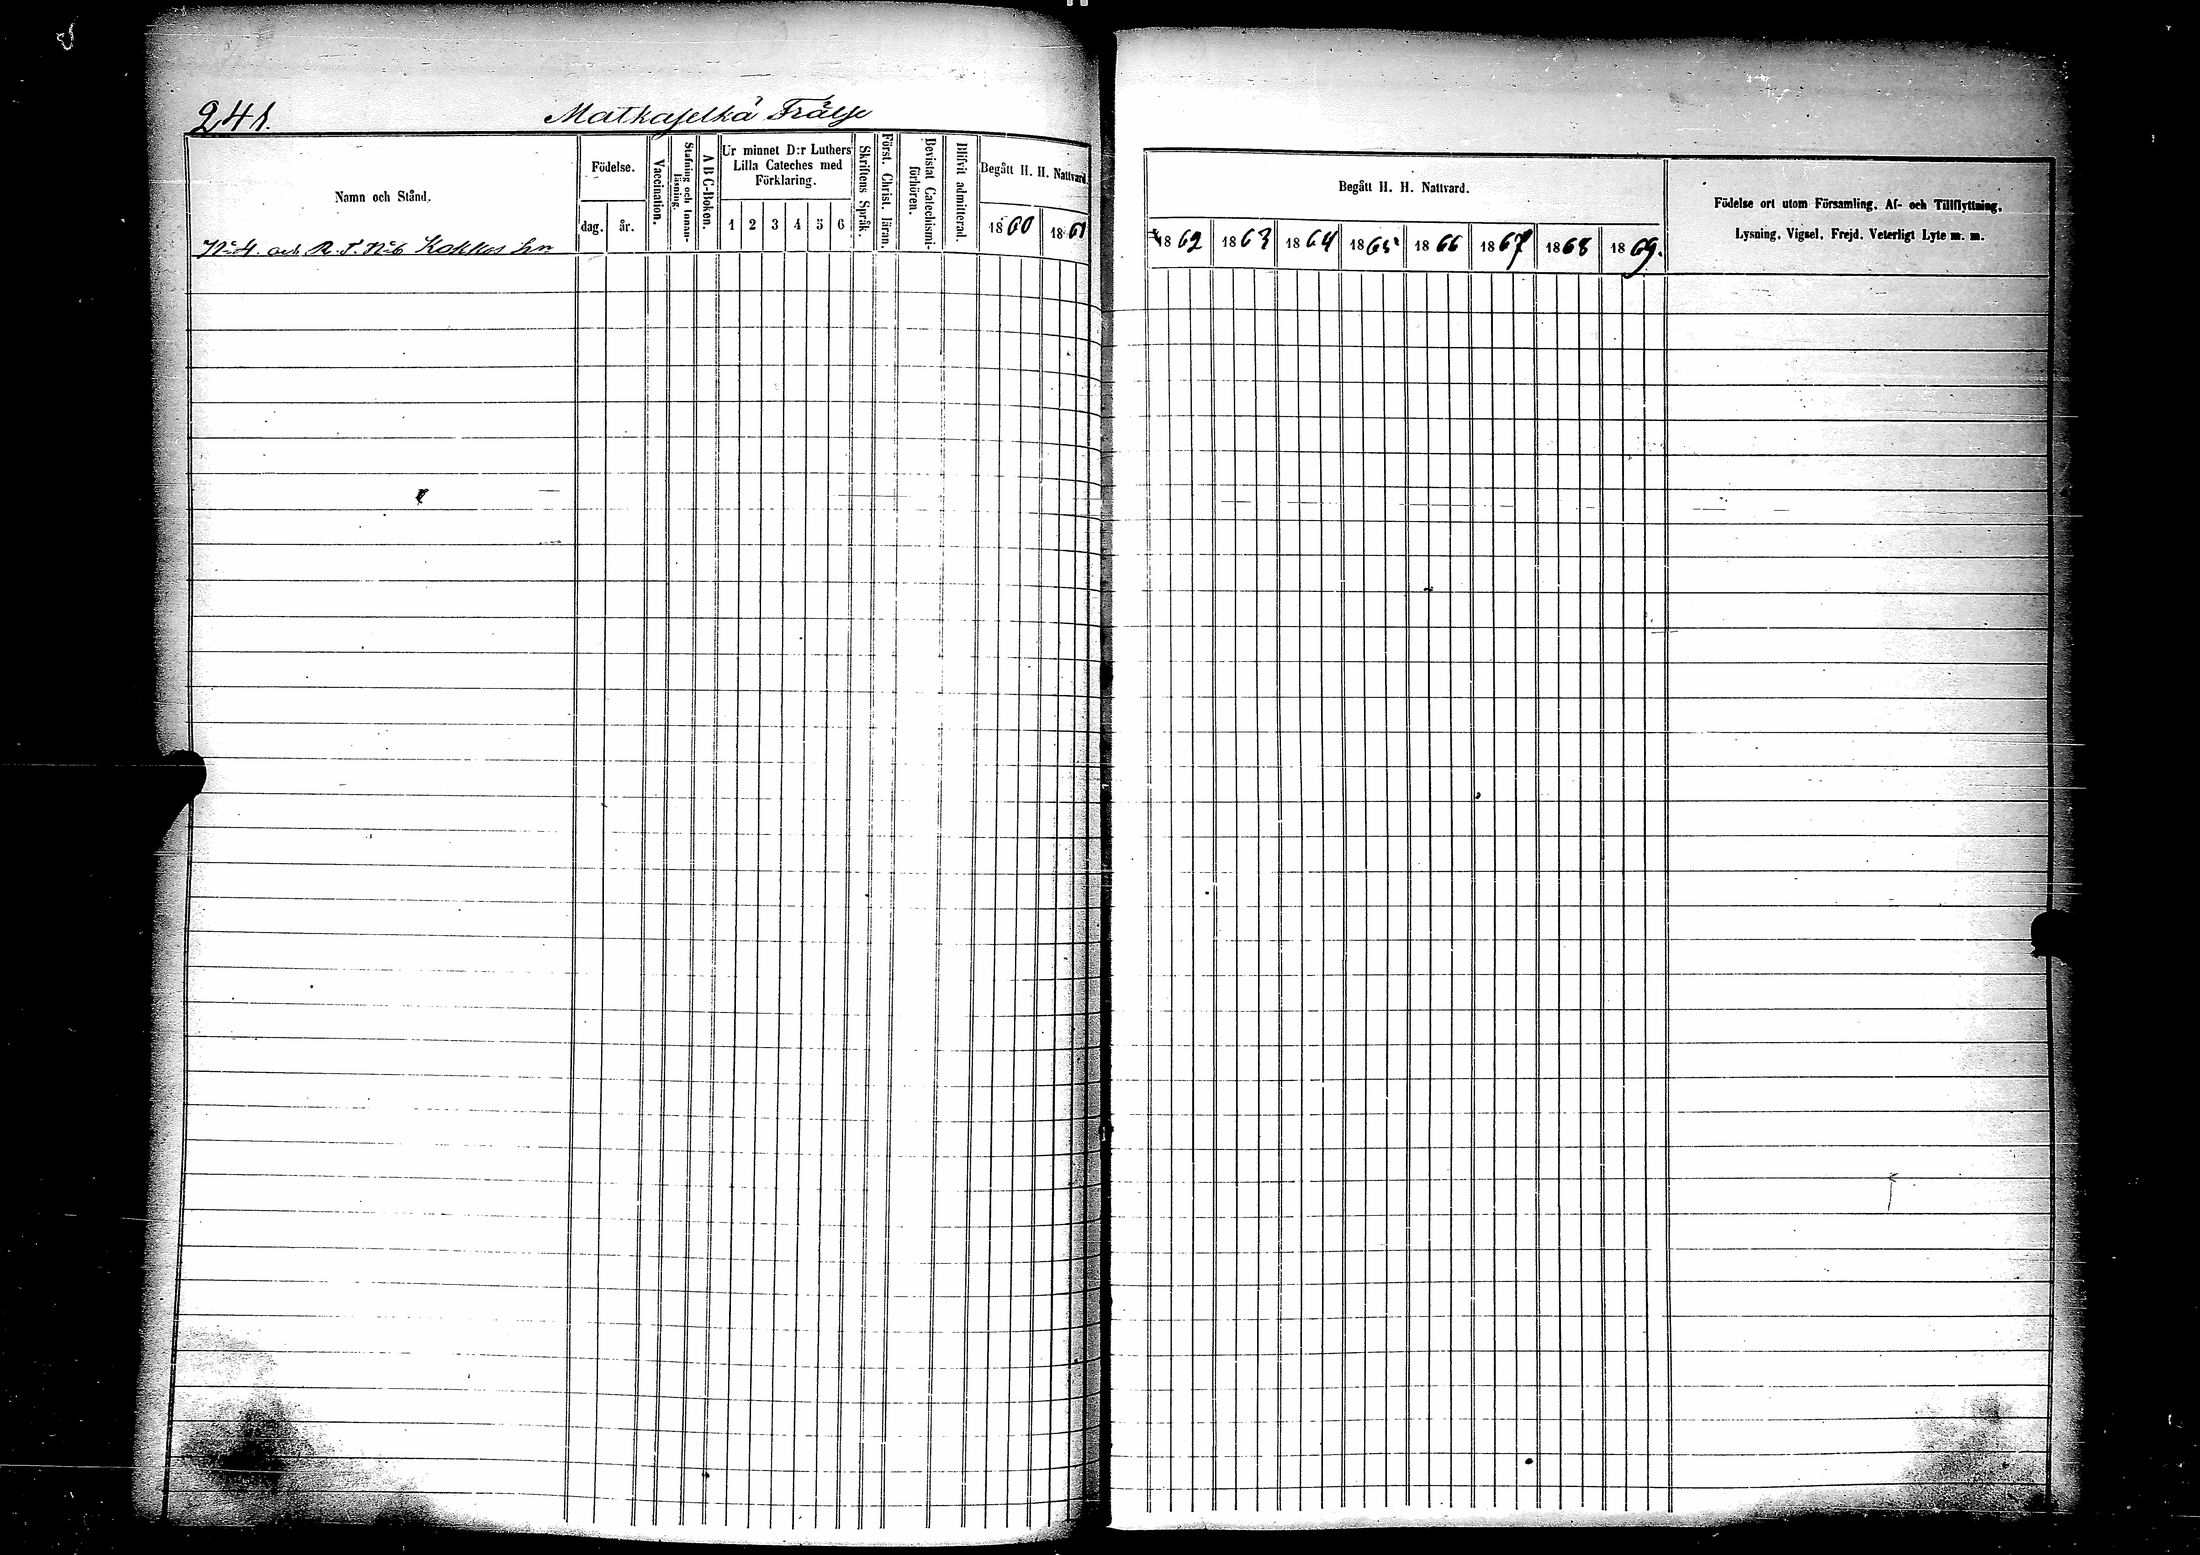 241.
Matkaselkä Frälse
Namn och Stånd.
Födelse.
dag. år.
Vaccination.
Stafning och Innan-
läsning.
A B C-Boken.
Ur minnet D:r Luthers
Lilla Cateches med
Förklaring.
1 2 3 4 5 6
Skriftens Språk.
Först. Christ. läran.
Bevistat Catechismi-
förhören.
Blifvit admitterad.
Begått H. H. Nattvard.
1860 1861
N:o 4. och R. T. N:o 6 Kokkos
Begått H. H. Nattvard.
1862 1863 1864 1865 1866 1867 1868 1869.
Födelse ort utom Församling. Af- och Tillflyttning.
Lysning. Vigsel. Frejd. Veterligt Lyte m. m.